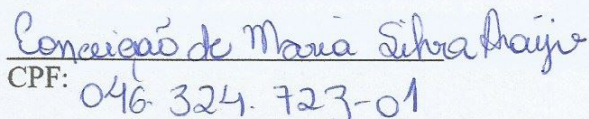 Conceição de Maria Silva Araújo
CPF: 046.324.723-01